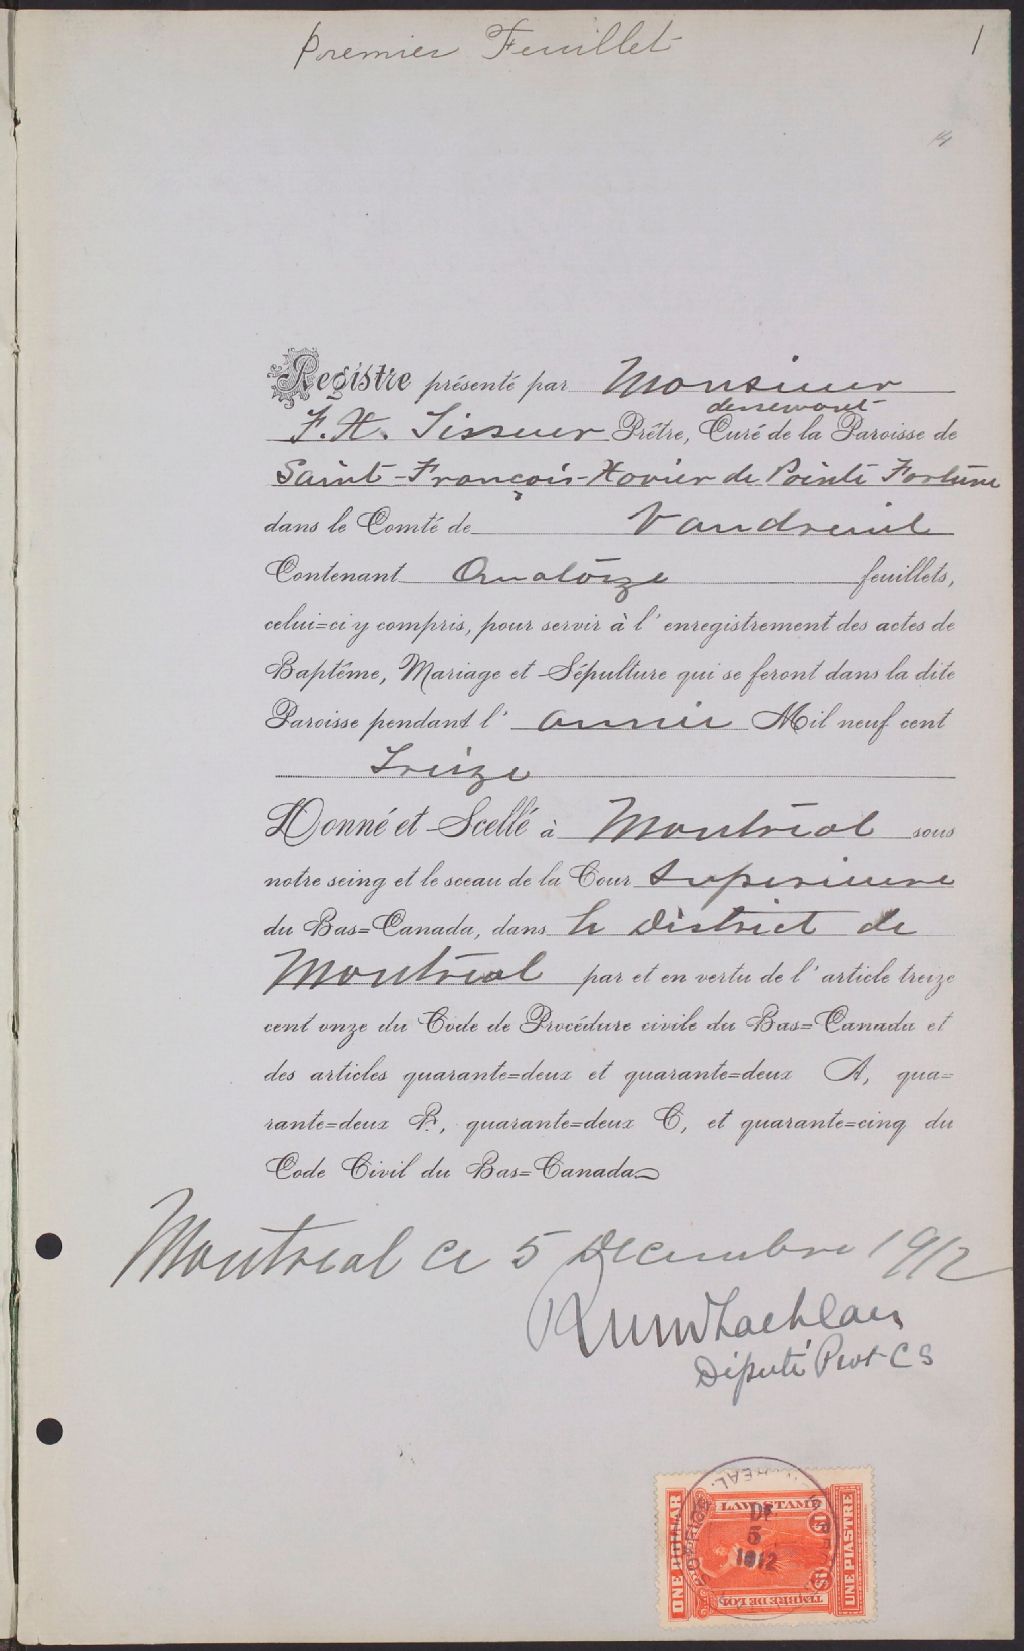 Premier Feuillet
1
14
Registre présenté par Monsieur
desservant
F. X. Tisseur Prêtre, Curé de la Paroisse de
Saint-François-Xavier de Pointe Fortune
dans le Comté de Vaudreuil
Contenant Quatorze feuillets,
celui=ci y compris, pour servir à l'enregistrement des actes de
Baptême, Mariage et Sépulture qui se feront dans la dite
Paroisse pendant l' année Mil neuf cent
Treize
Donné et Scellé à Montréal sous
notre seing et le sceau de la Cour Supérieure
du Bas=Canada, dans le District de
Montréal par et en vertu de l'article treize
cent onze du Code de Procédure civile du Bas=Canada et
des articles quarante=deux et quarante=deux A, qua=
rante=deux B, quarante=deux C, et quarante=cinq du
Code Civil du Bas=Canada
Montreal ce 5 Decembre 1912
Député Prot C S
ONE DOLLAR
LAW STAMP
TIMBRE DE LOI
UNE PIASTRE
DE
5
1912